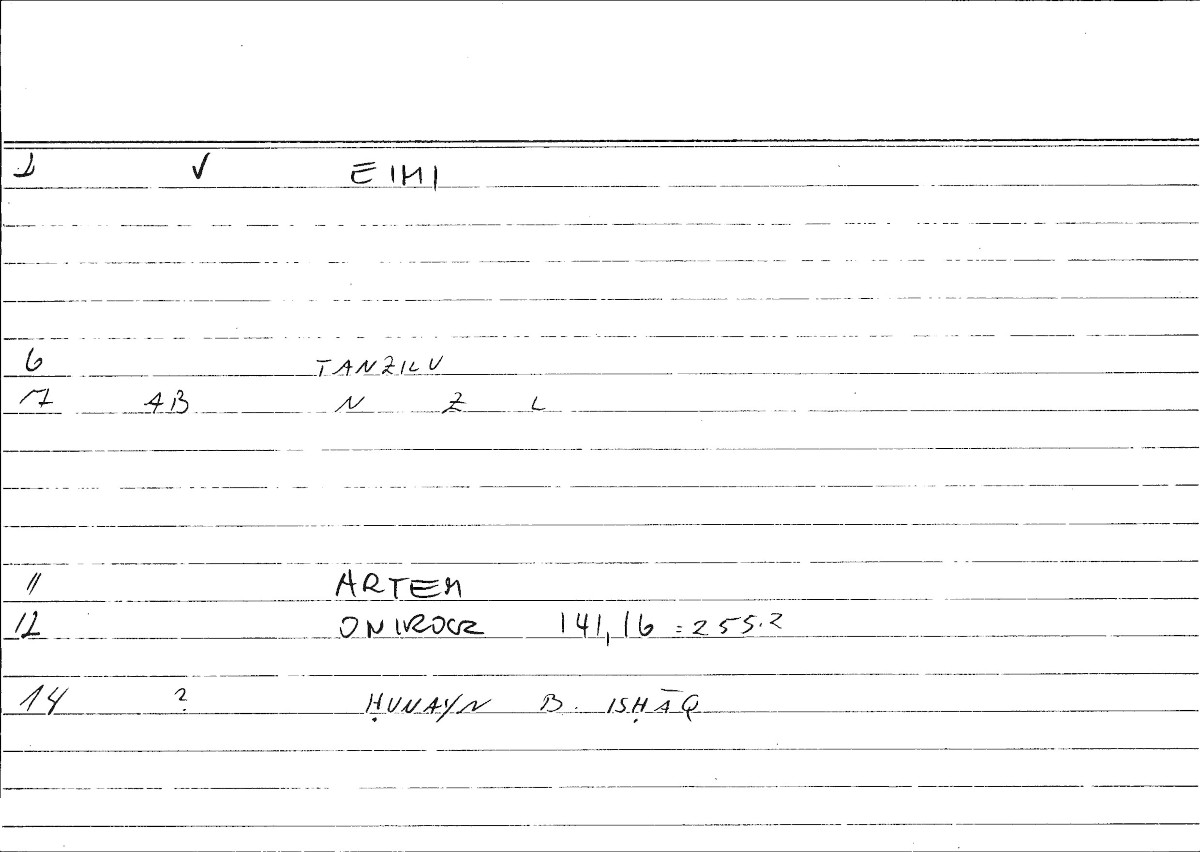 1 √ EIMI
6 TANZILU
7 AB N Z L
11 ARTEM
12 ONIROCR 141,16 = 255.2
14 ? ḤUNAYN B. ISḤĀQ